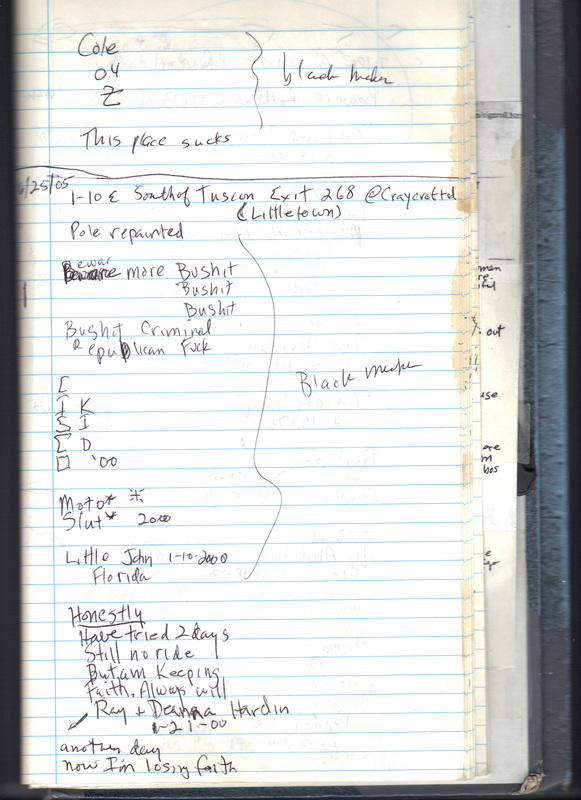 Cole
04
Z
black marker
This place sucks
/25/05
I-10 E South of Tuscon Exit 268 @Craycroft
(Littletown)
Pole repainted
Beware more Bushit
Bushit
Bushit
Bushit Criminal
Republican Fuck
Black marker
[
I K
S I
[ D
□ '00
Moto*
Slut* 2000
Little John 1-10-2000
Florida
Honestly
Have tried 2 days
Still no ride
But am Keeping
Faith, Always will
Ray + Deanna Hardin
1-21-00
another day
now I'm losing faith
men
re.
out
use
ere
m
bos
e